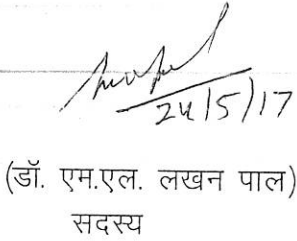 24/5/17
(डॉ. एम.एल. लखन पाल)
सदस्य